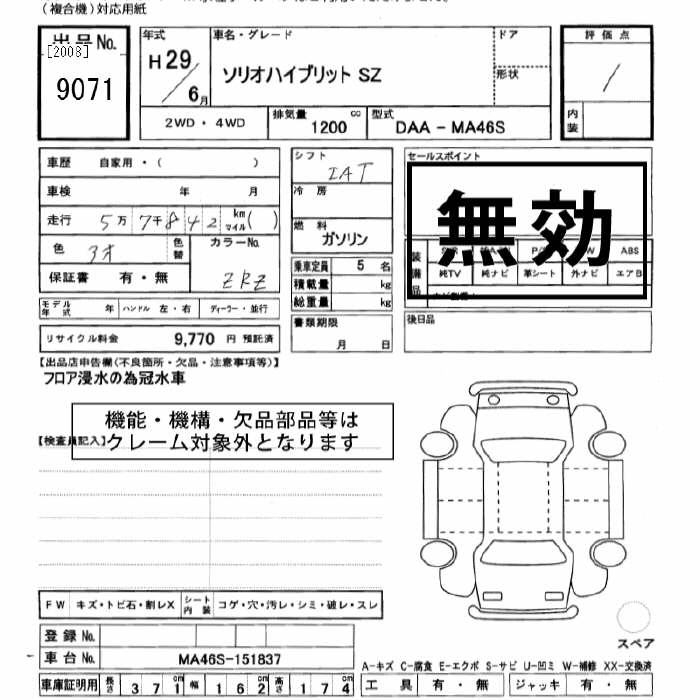 (複合機)対応用紙
出品No.
[2008]
9071
年式
H29
6月
車名・グレード
ソリオハイブリット SZ
ドア
形状
評価点
/
内装
2WD・4WD
排気量
1200 cc
型式
DAA - MA46S
車歴 自家用・( )
車検 年 月
走行 5万 7千 8 4 2 km マイル( )
色
色替
カラーNo.
ZRZ
保証書 有・無
モデル年式 年 ハンドル 左・右 ディーラー・並行
リサイクル料金 9,770 円 預託済
シフト
IAT
冷房
燃料
ガソリン
乗車定員 5 名
積載量 kg
総重量 kg
書類期限
月 日
セールスポイント
無効
装備品
ABS
純TV 純ナビ 革シート 外ナビ エアB
後日品
【出品店申告欄(不良箇所・欠品・注意事項等)】
フロア浸水の為冠水車
機能・機構・欠品部品等は
クレーム対象外となります
【検査員記入】
FW キズ・トビ石・割レX シート内装 コゲ・穴・汚レ・シミ・破レ・スレ
登録No.
車台No. MA46S-151837
車庫証明用 長さ 371 cm 幅 162 cm 高さ 174 cm
スペア
A-キズ C-腐食 E-エクボ S-サビ U-凹ミ W-補修 XX-交換済
工具 有・無 ジャッキ 有・無